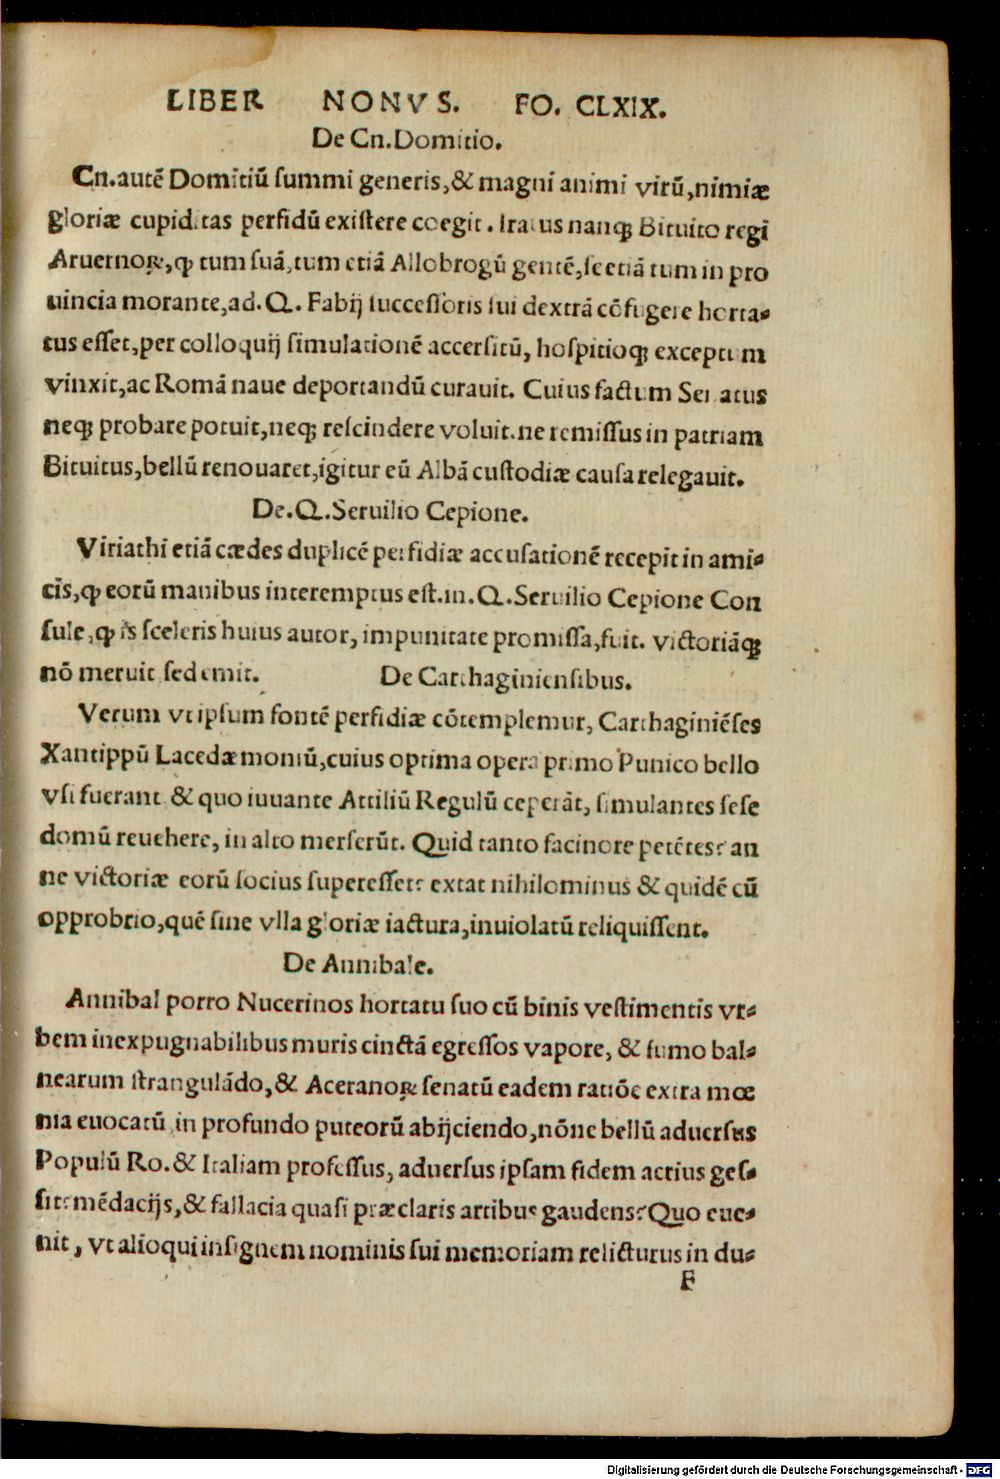 LIBER NONVS. FO. CLXIX.
De Cn.Domitio.
Cn.autē Domitiū ſummi generis,& magni animi virū,nimiæ
gloriæ cupiditas perfidū exiſtere coegit. Iratus nanq; Bituito regi
Aruernoꝝ,ꝙ tum ſuā,tum etiā Allobrogū gentē,ſe etiā tum in pro
uincia morante,ad.Q. Fabij ſucceſſoris ſui dextrā cōfugere horta-
tus eſſet,per colloquij ſimulationē accerſitū, hoſpitioq; exceptum
vinxit,ac Romā naue deportandū curauit. Cuius factum Senatus
neq; probare potuit,neq; reſcindere voluit.ne remiſſus in patriam
Bituitus,bellū renouaret,igitur eū Albā cuſtodiæ cauſa relegauit.
De.Q.Seruilio Cepione.
Viriathi etiā cædes duplicē perfidiæ accuſationē recepit in ami-
cis,ꝙ eorū manibus interemptus eſt.in.Q.Seruilio Cepione Con
ſule,ꝙ is ſceleris huius autor, impunitate promiſſa,fuit. victoriāq;
nō meruit ſed emit. De Carthaginienſibus.
Verum vt ipſum fontē perfidiæ cōtemplemur, Carthaginiēſes
Xantippū Lacedæmoniū,cuius optima opera primo Punico bello
vſi fuerant & quo iuuante Attiliū Regulū ceperāt, ſimulantes ſeſe
domū reuehere, in alto merſerūt. Quid tanto facinore petētes? an
ne victoriæ eorū ſocius ſupereſſet? extat nihilominus & quidē cū
opprobrio,quē ſine vlla gloriæ iactura,inuiolatū reliquiſſent.
De Annibale.
Annibal porro Nucerinos hortatu ſuo cū binis veſtimentis vr-
bem inexpugnabilibus muris cinctā egreſſos vapore, & fumo bal-
nearum ſtrangulādo,& Aceranoꝝ ſenatū eadem ratiōe extra mœ
nia euocatū in profundo puteorū abijciendo,nōne bellū aduerſus
Populū Ro.& Italiam profeſſus, aduerſus ipſam fidem acrius geſ-
ſit? mēdacijs,& fallacia quaſi præclaris artibus gaudens? Quo eue-
nit, vt alioqui inſignem nominis ſui memoriam relicturus in du-
F
Digitalisierung gefördert durch die Deutsche Forschungsgemeinschaft - DFG